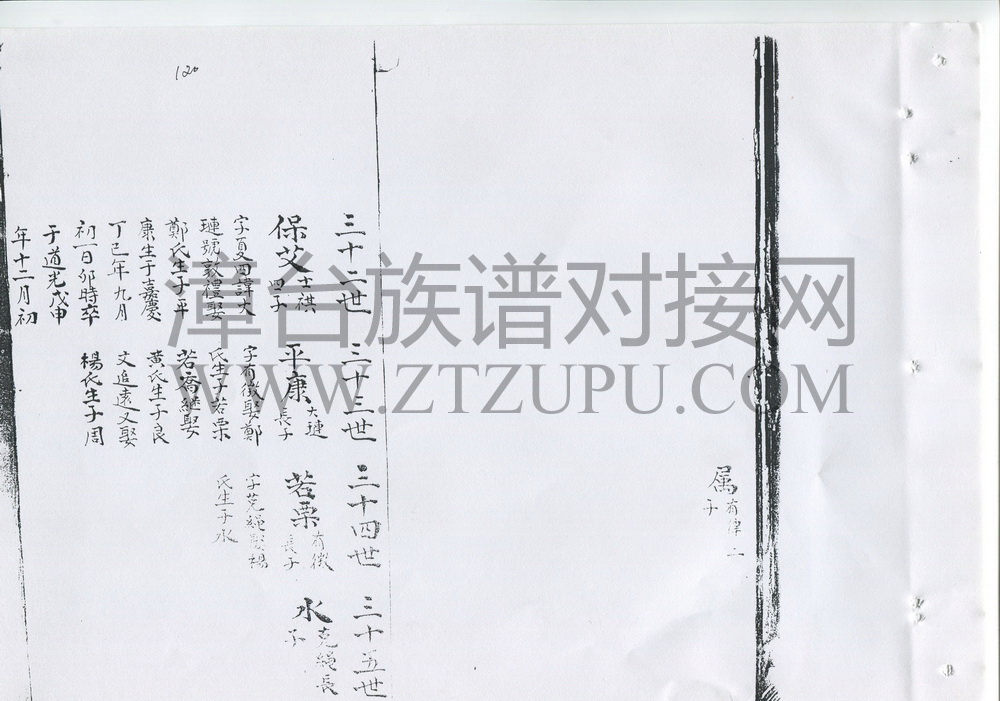 120
属 有律二
子
三十二世
保艾 士祺
四子
字夏四諱大
璉號敦禮娶
鄭氏生子平
康生于嘉慶
丁巳年九月
初一日卯時卒
于道光戊申
年十二月初
三十三世
平康 大璉
長子
字有徵娶鄭
氏生子若栗
若喬継娶
黄氏生子良
文追遠又娶
楊氏生子周
三十四世
若栗 有徵
長子
字克繩娶楊
氏生子水
三十五世
水 克繩長
子
漳台族谱对接网
WWW.ZTZUPU.COM